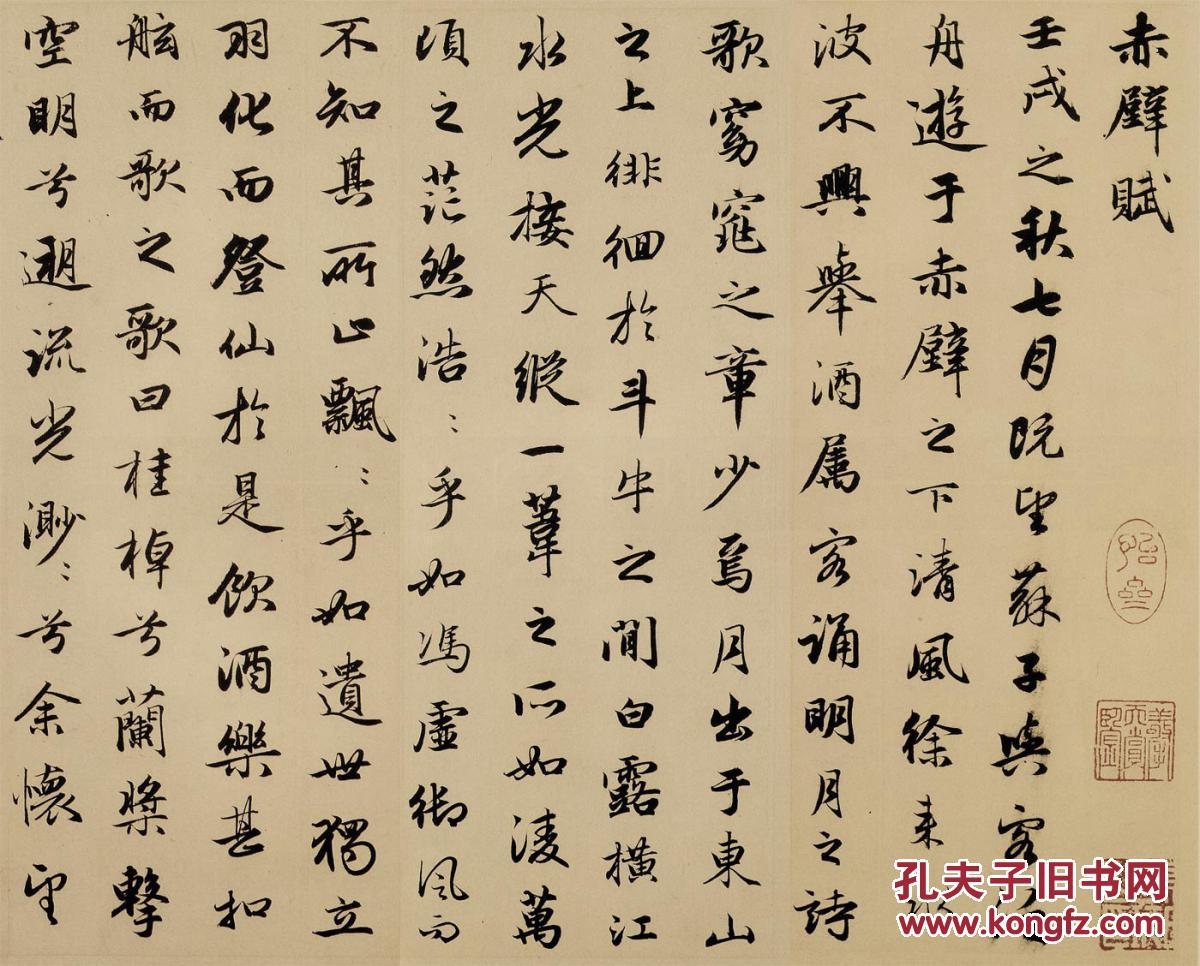 赤壁賦
壬戌之秋七月既望蘇子與客泛
舟遊于赤壁之下清風徐来水
波不興舉酒属客誦明月之詩
歌窈窕之章少焉月出于東山
之上徘徊於斗牛之間白露橫江
水光接天縱一葦之所如凌萬
頃之茫然浩〻乎如馮虛御风而
不知其所止飄〻乎如遺世獨立
羽化而登仙於是飲酒樂甚扣
舷而歌之歌曰桂棹兮蘭槳擊
空明兮遡流光渺〻兮余懷望
孔夫子旧书网
www.kongfz.com